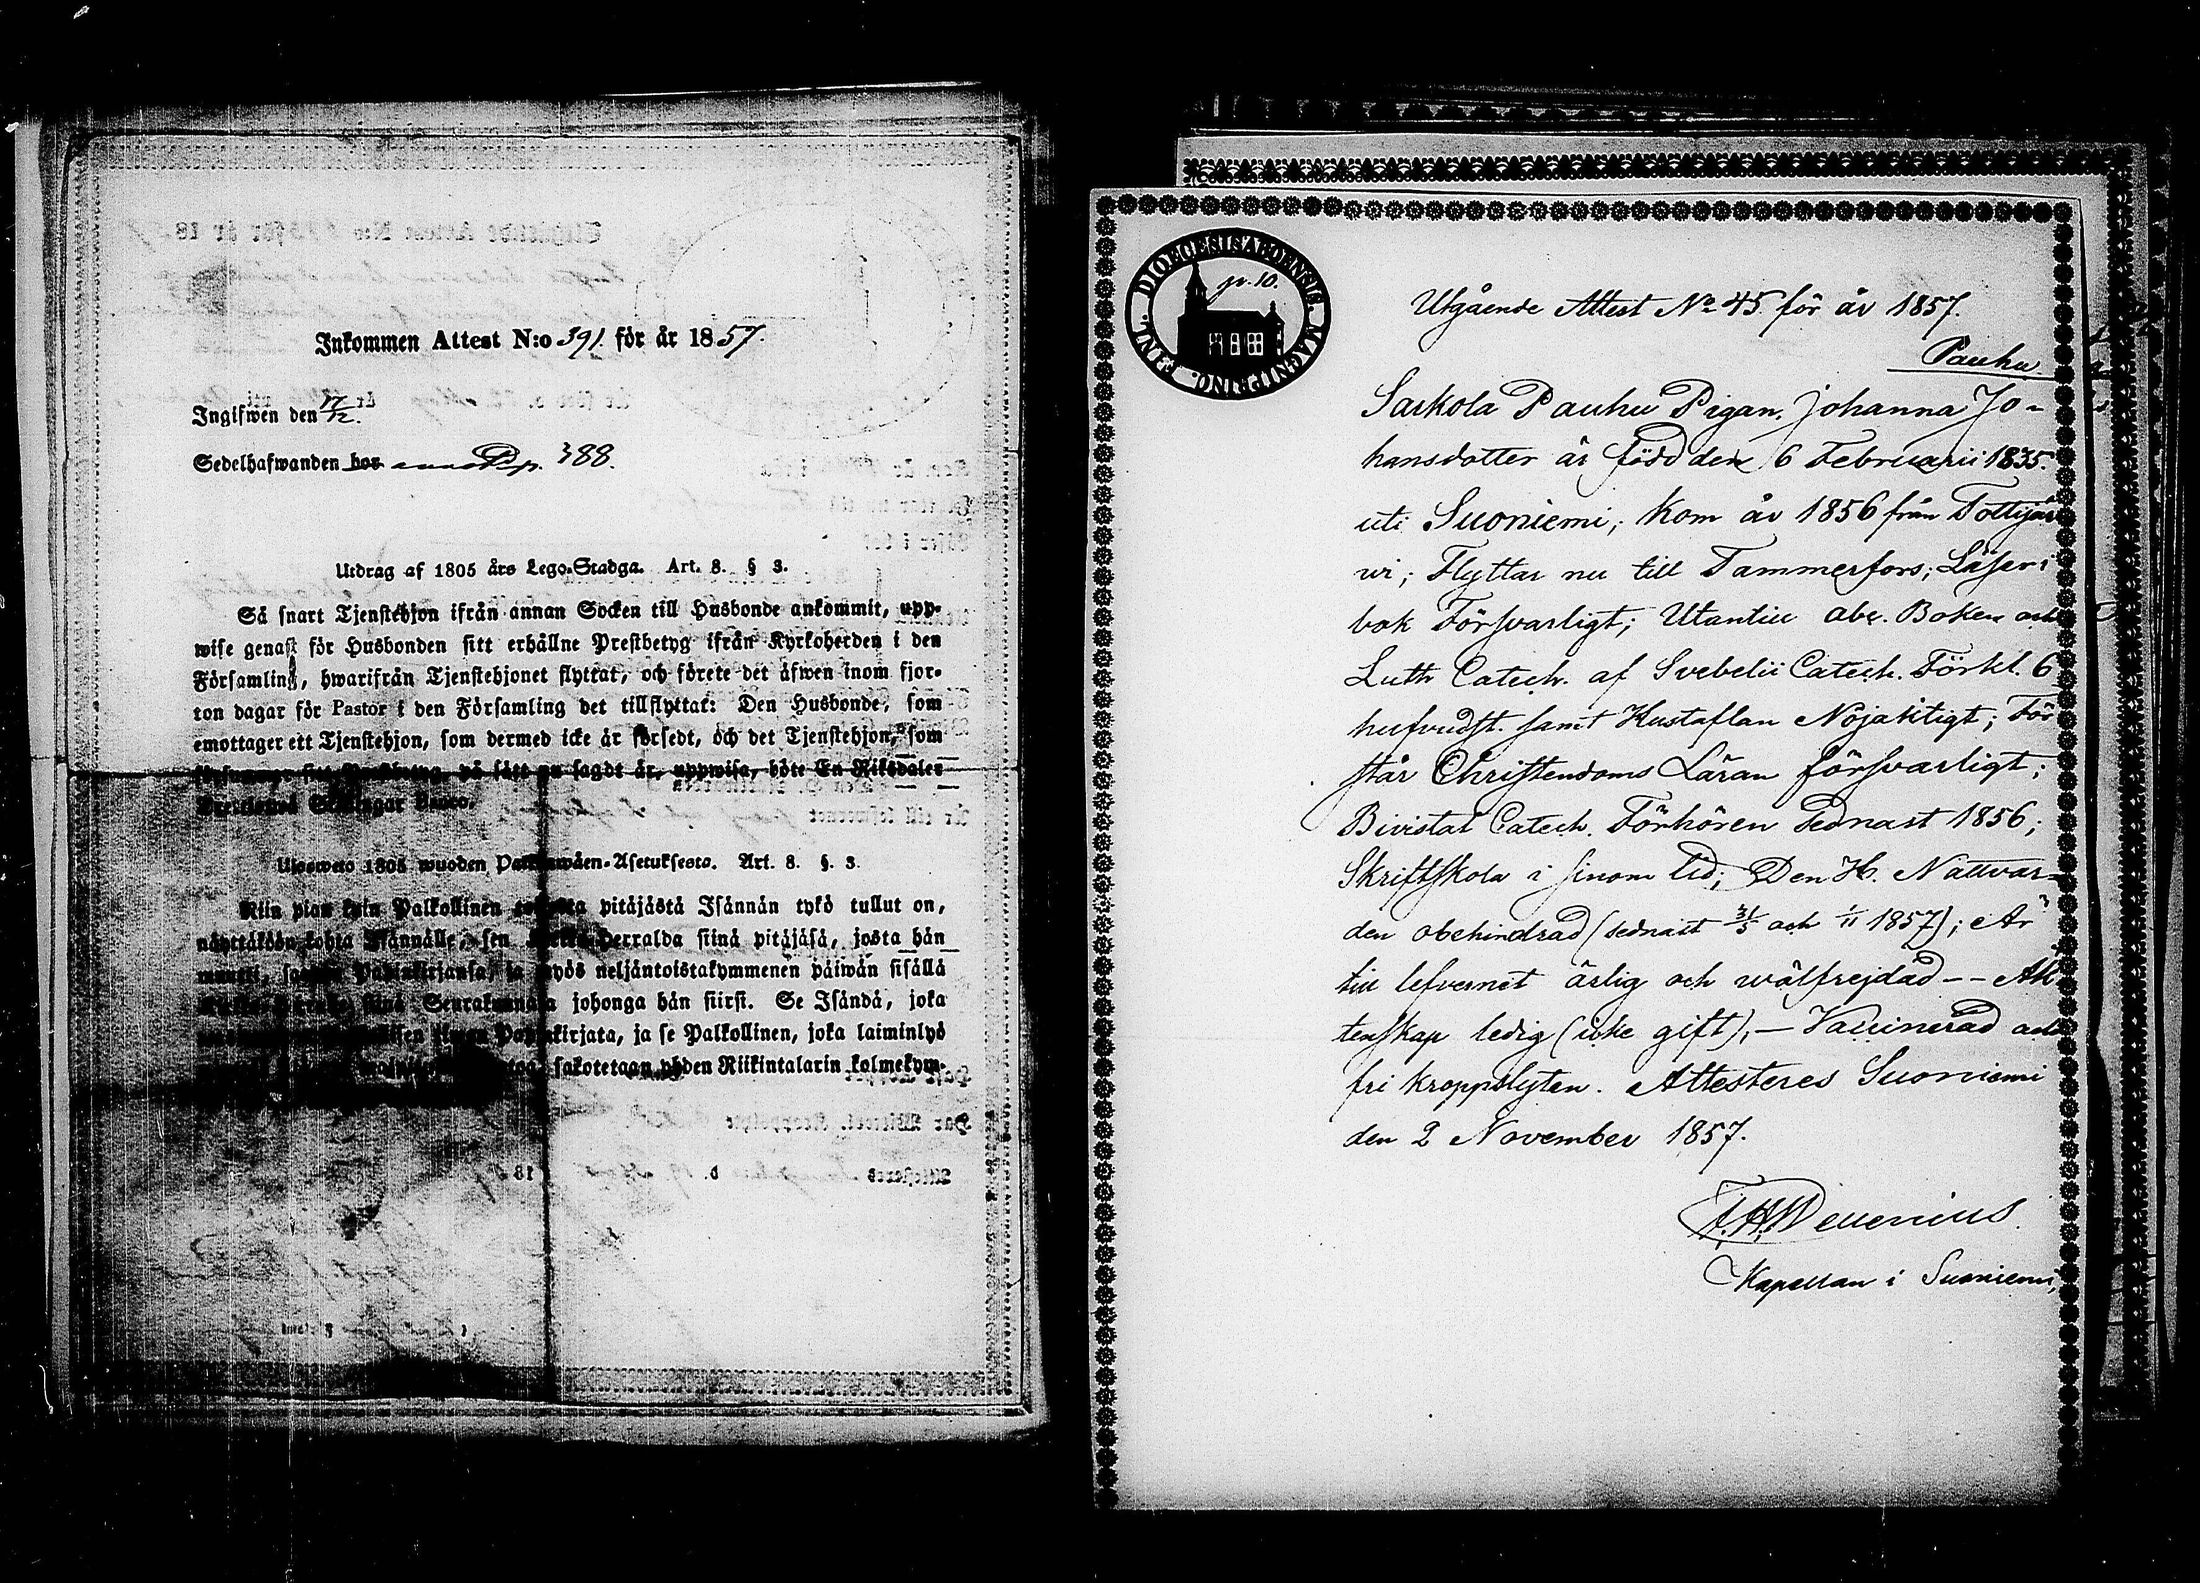 Inkommen Attest N:o 391. för år 1857.
Ingifwen den 17/12.
Sedelhafwanden bor anno Pg. 388.
Utdrag af 1805 års Lego-Stadga. Art. 8. § 3.
Så snart Tjenstehjon ifrån annan Socken till Husbonde ankommit, upp-
wise genast för Husbonden sitt erhållne Prestbetyg ifrån Kyrkoherden i den
Församling, hwarifrån Tjenstehjonet flyttat, och förete det äfwen inom fjor-
ton dagar för Pastor i den Församling det tillflyttat: Den Husbonde, som
emottager ett Tjenstehjon, som dermed icke är försedt, och det Tjenstehjon, som
försummar sitt Prestbetyg, på sätt nu sagdt är, uppwisa, böte En Riksdaler
Skillingar Banco.
Ulosweto 1805 wuoden Palkkawäen-Asetuksesta. Art. 8. §. 3.
Niin pian kuin Palkollinen toisesta pitäjästä Isännän tykö tullut on,
näyttäköön kohta Isännälle, sen Kirkko-Herralda siinä pitäjäsä, josta hän
muutti, saadun Papinkirjansa, ja myös neljäntoistakymmenen päiwän sisällä
siinä Seurakunnasa johonga hän siirsi. Se Isändä, joka
ilman Papinkirjata, ja se Palkollinen, joka laiminlyö
sakotetaan yhden Riikintalarin kolmekym-
DIOECESIS ABOENSIS. MAGNI PRINC. FENL.
gr. 10.
Utgående Attest No 45 för år 1857.
Pauhu
Sarkola Pauhu Pigan, Johanna Jo-
hansdotter är född den 6 Februarii 1835.
uti Suoniemi; kom år 1856 från Tottijär
wi; Flyttar nu till Tammerfors; Läser i
bok Försvarligt; Utantill abc. Boken och
Luth Catech. af Svebelii Catech. Förkl. 6
hufvudst. samt Hustaflan Nöjaktigt; För
står Christendoms Läran försvarligt;
Bivistat Catech. Förhören sednast 1856;
Skriftskola i sinom tid; Den H. Nattvar-
den obehindrad (sednast 31/5 och 1/11 1857); Är
till lefvernet ärlig och wälfrejdad - - Äk
tenskap ledig (icke gift); - Vaccinerad och
fri kroppslyten. Attesteres Suoniemi
den 2 November 1857.
Kapellan i Suoniemi,